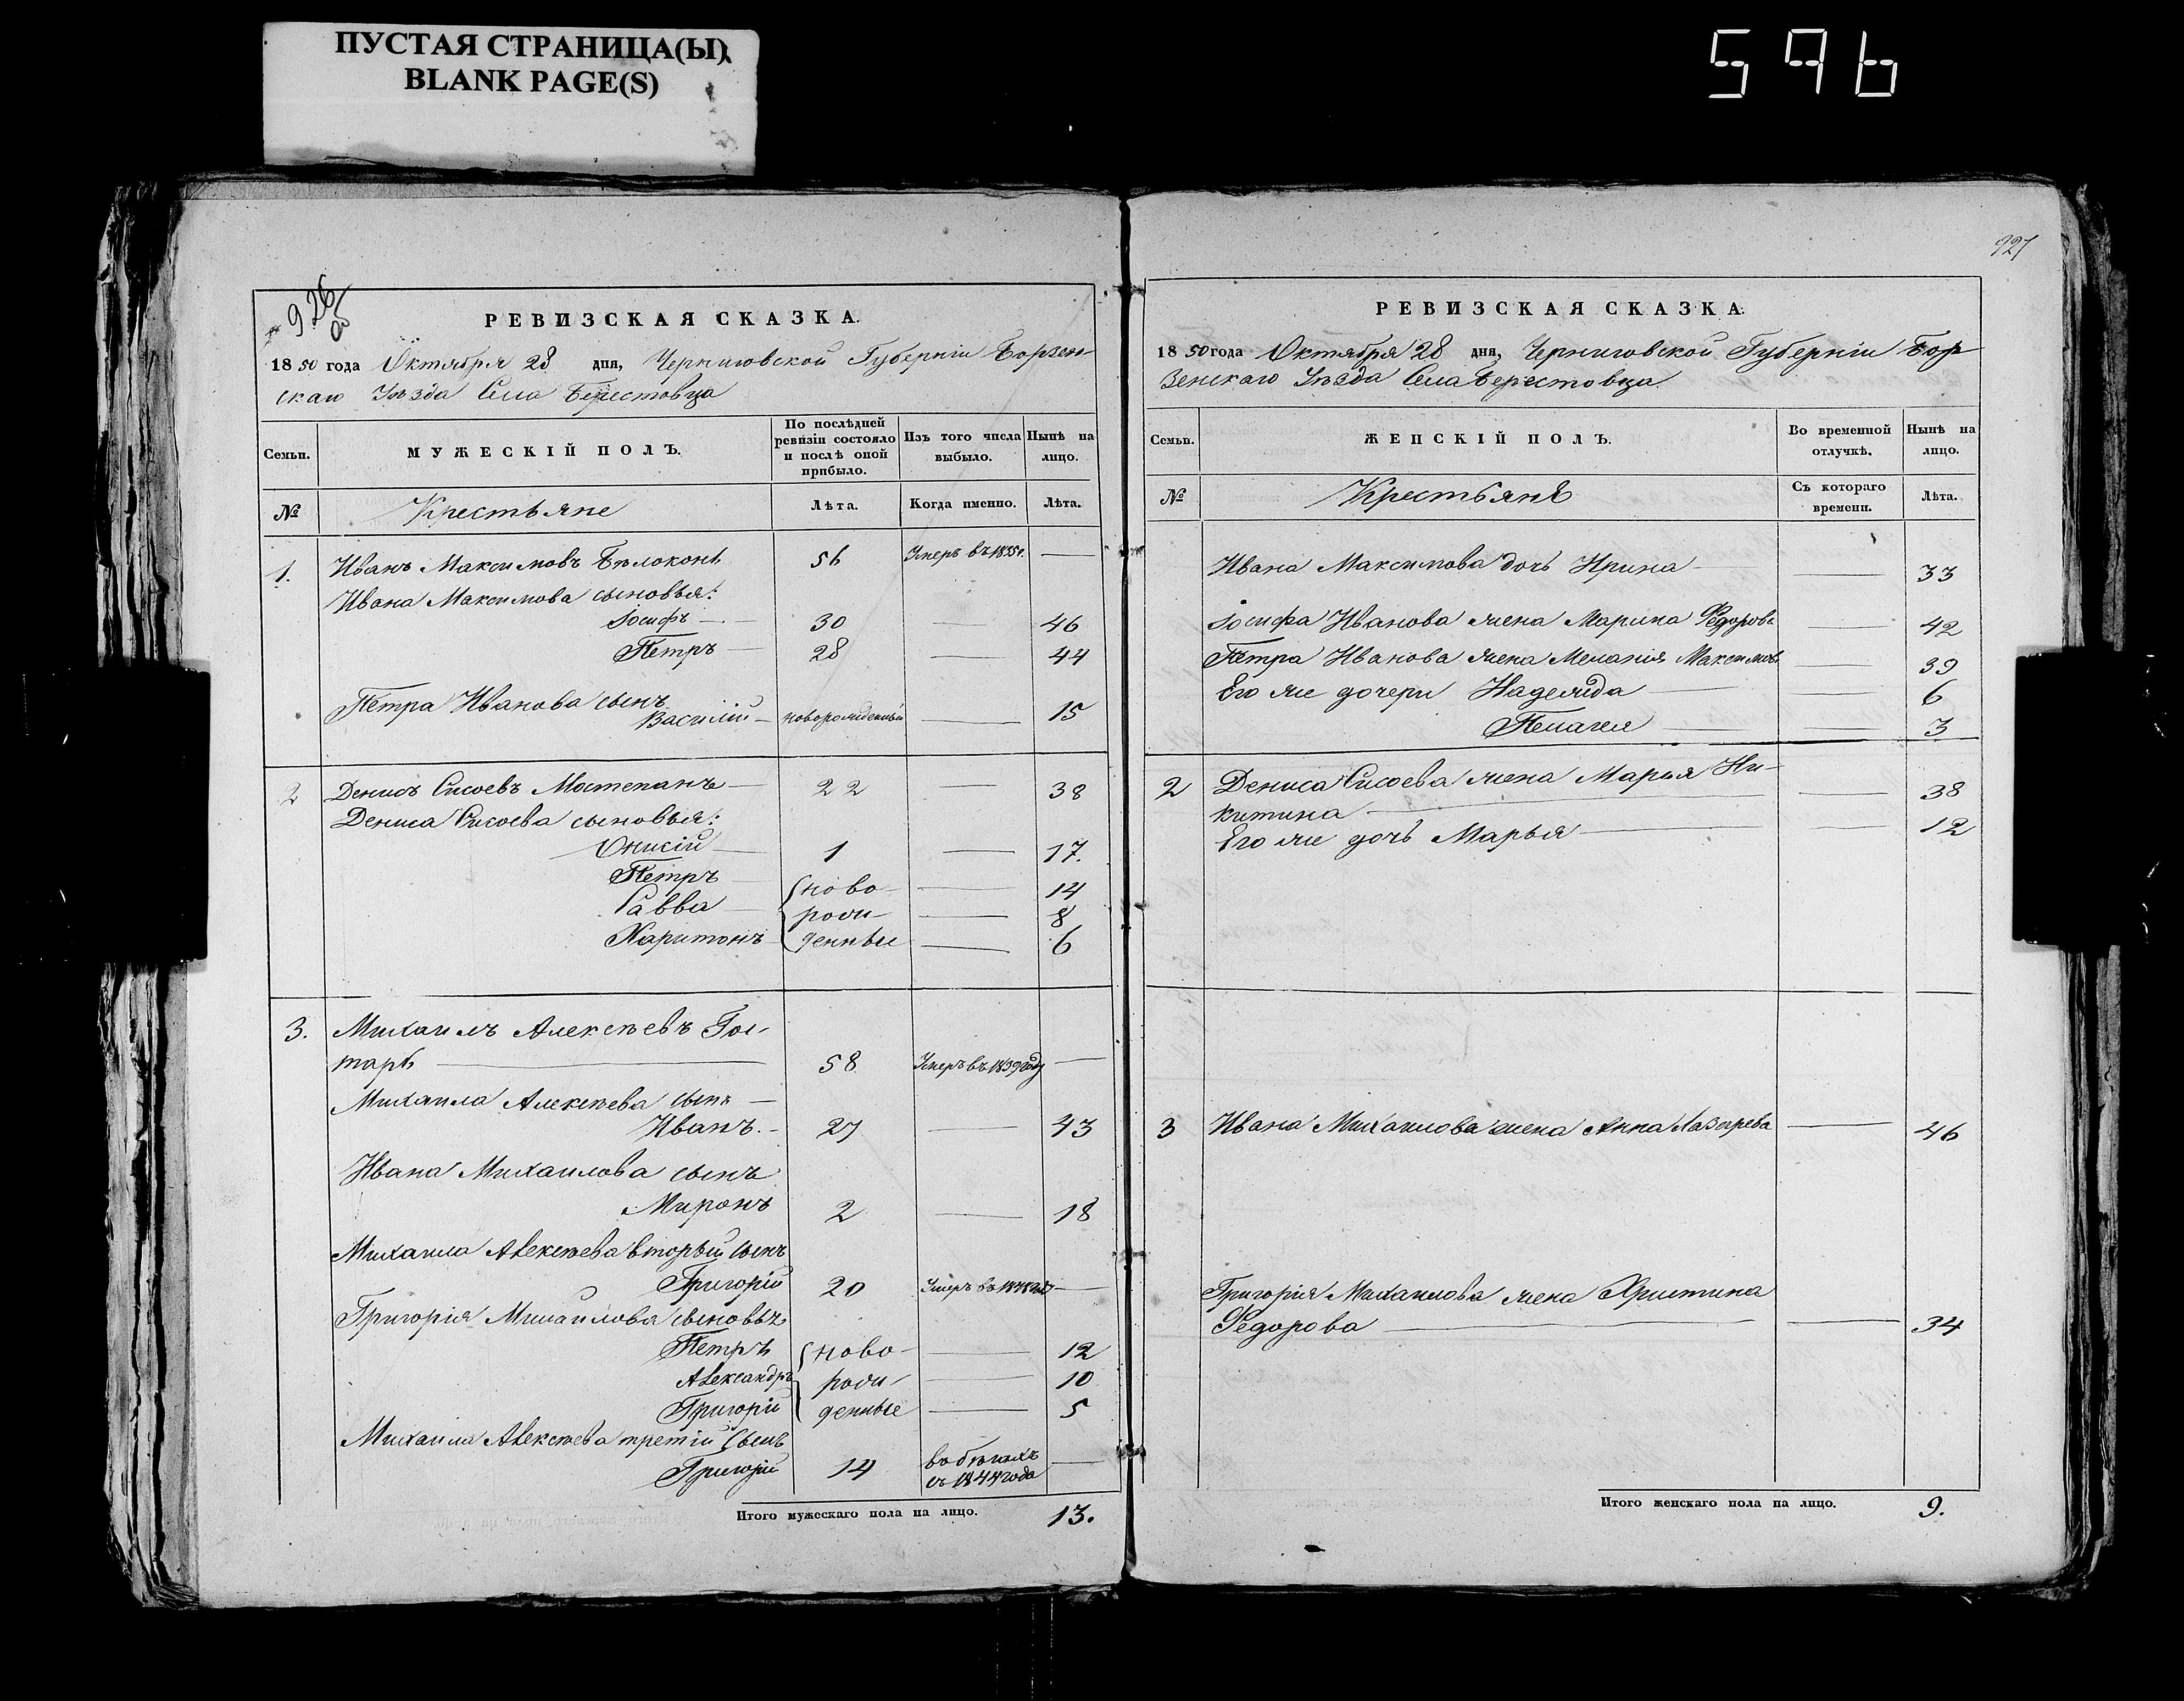 ПУСТАЯ СТРАНИЦА(Ы)
BLANK PAGE(S)
596
927
926
об
РЕВИЗСКАЯ СКАЗКА.
1850 года Октября 28 дня, Черниговской Губерніи Борзен-
скаго Уѣзда Села Берестовца
Семьи.
МУЖЕСКІЙ ПОЛЪ.
По послѣдней ревизіи состояло и послѣ оной прибыло.
Изъ того числа выбыло.
Нынѣ на лицо.
№
Крестьяне
Лѣта.
Когда именно.
Лѣта.
1. Иванъ Максимовъ Бѣлоконь 56 Умеръ въ 1835г. —
Ивана Максимова сыновья:
Іосифъ — 30 — 46
Петръ — 28 — 44
Петра Иванова сынъ
Василій — новорожденный — 15
2 Денисъ Сисоевъ Мостепанъ — 22 — 38
Дениса Сисоева сыновья:
Онисій — 1 — 17.
Петръ — ново- — 14
Савва — рож- — 8
Харитонъ денные — 6
3. Михаилъ Алексѣевъ Гон-
таръ — 58 Умеръ въ 1839 году —
Михаила Алексѣева сынъ —
Иванъ. - 27 — 43
Ивана Михаилова сынъ
Миронъ 2 — 18
Михаила Алексѣева вторый сынъ
Григорій 20 Умеръ въ 1848 году —
Григорія Михаилова сыновья
Петръ ново- — 12
Александръ рож- — 10
Григорій денные — 5
Михаила Алексѣева третій сынъ
Григорій 14 въ бѣгахъ
съ 1844 года —
Итого мужескаго пола на лицо. 13.
РЕВИЗСКАЯ СКАЗКА.
1850 года Октября 28 дня, Черниговской Губерніи Бор
зенскаго Уѣзда Села Берестовца
Семьи.
ЖЕНСКІЙ ПОЛЪ.
Во временной отлучкѣ.
Нынѣ на лицо.
№
Крестьянѣ
Съ котораго времени.
Лѣта.
Ивана Максимова дочь Ирина — 33
Іосифа Иванова жена Марина Федорова — 42
Петра Иванова жена Меланія Максимова — 39
Его же дочери Надежда — 6
Пелагея — 3
2 Дениса Сисоева жена Марья Ни-
китина — 38
Его же дочь Марья — 12
3 Ивана Михаилова жена Анна Лазарева — 46
Григорія Михаилова жена Христина
Федорова — 34
Итого женскаго пола на лицо. 9.